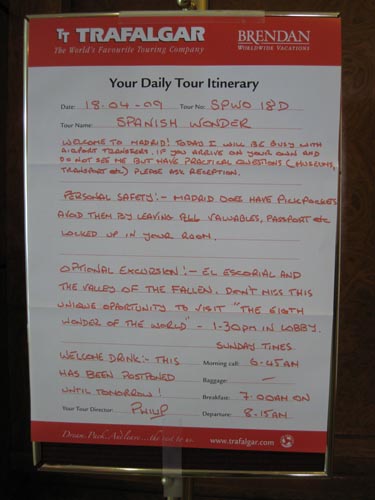 TT TRAFALGAR
The World's Favourite Touring Company
BRENDAN
WORLDWIDE VACATIONS
Your Daily Tour Itinerary
Date: 18-04-09 Tour No: SPWO 18D
Tour Name: SPANISH WONDER
WELCOME TO MADRID! TODAY I WILL BE BUSY WITH
AIRPORT TRANSFERS. IF YOU ARRIVE ON YOUR OWN AND
DO NOT SEE ME BUT HAVE PRACTICAL QUESTIONS (MUSEUMS,
TRANSPORT etc) PLEASE ASK RECEPTION.
PERSONAL SAFETY:- MADRID DOES HAVE PICKPOCKETS
AVOID THEM BY LEAVING ALL VALUABLES, PASSPORT etc
LOCKED UP IN YOUR ROOM.
OPTIONAL EXCURSION:- EL ESCORIAL AND
THE VALLEY OF THE FALLEN. DON'T MISS THIS
UNIQUE OPORTUNITY TO VISIT "THE EIGTH
WONDER OF THE WORLD" - 1-30pm IN LOBBY.
SUNDAY TIMES
WELCOME DRINK:- THIS
HAS BEEN POSTPONED
UNTIL TOMORROW!
Morning call: 6-45AM
Baggage: —
Breakfast: 7.00AM ON
Your Tour Director: PHILIP
Departure: 8.15AM
Dream, Pack, And leave... the rest to us.
www.trafalgar.com